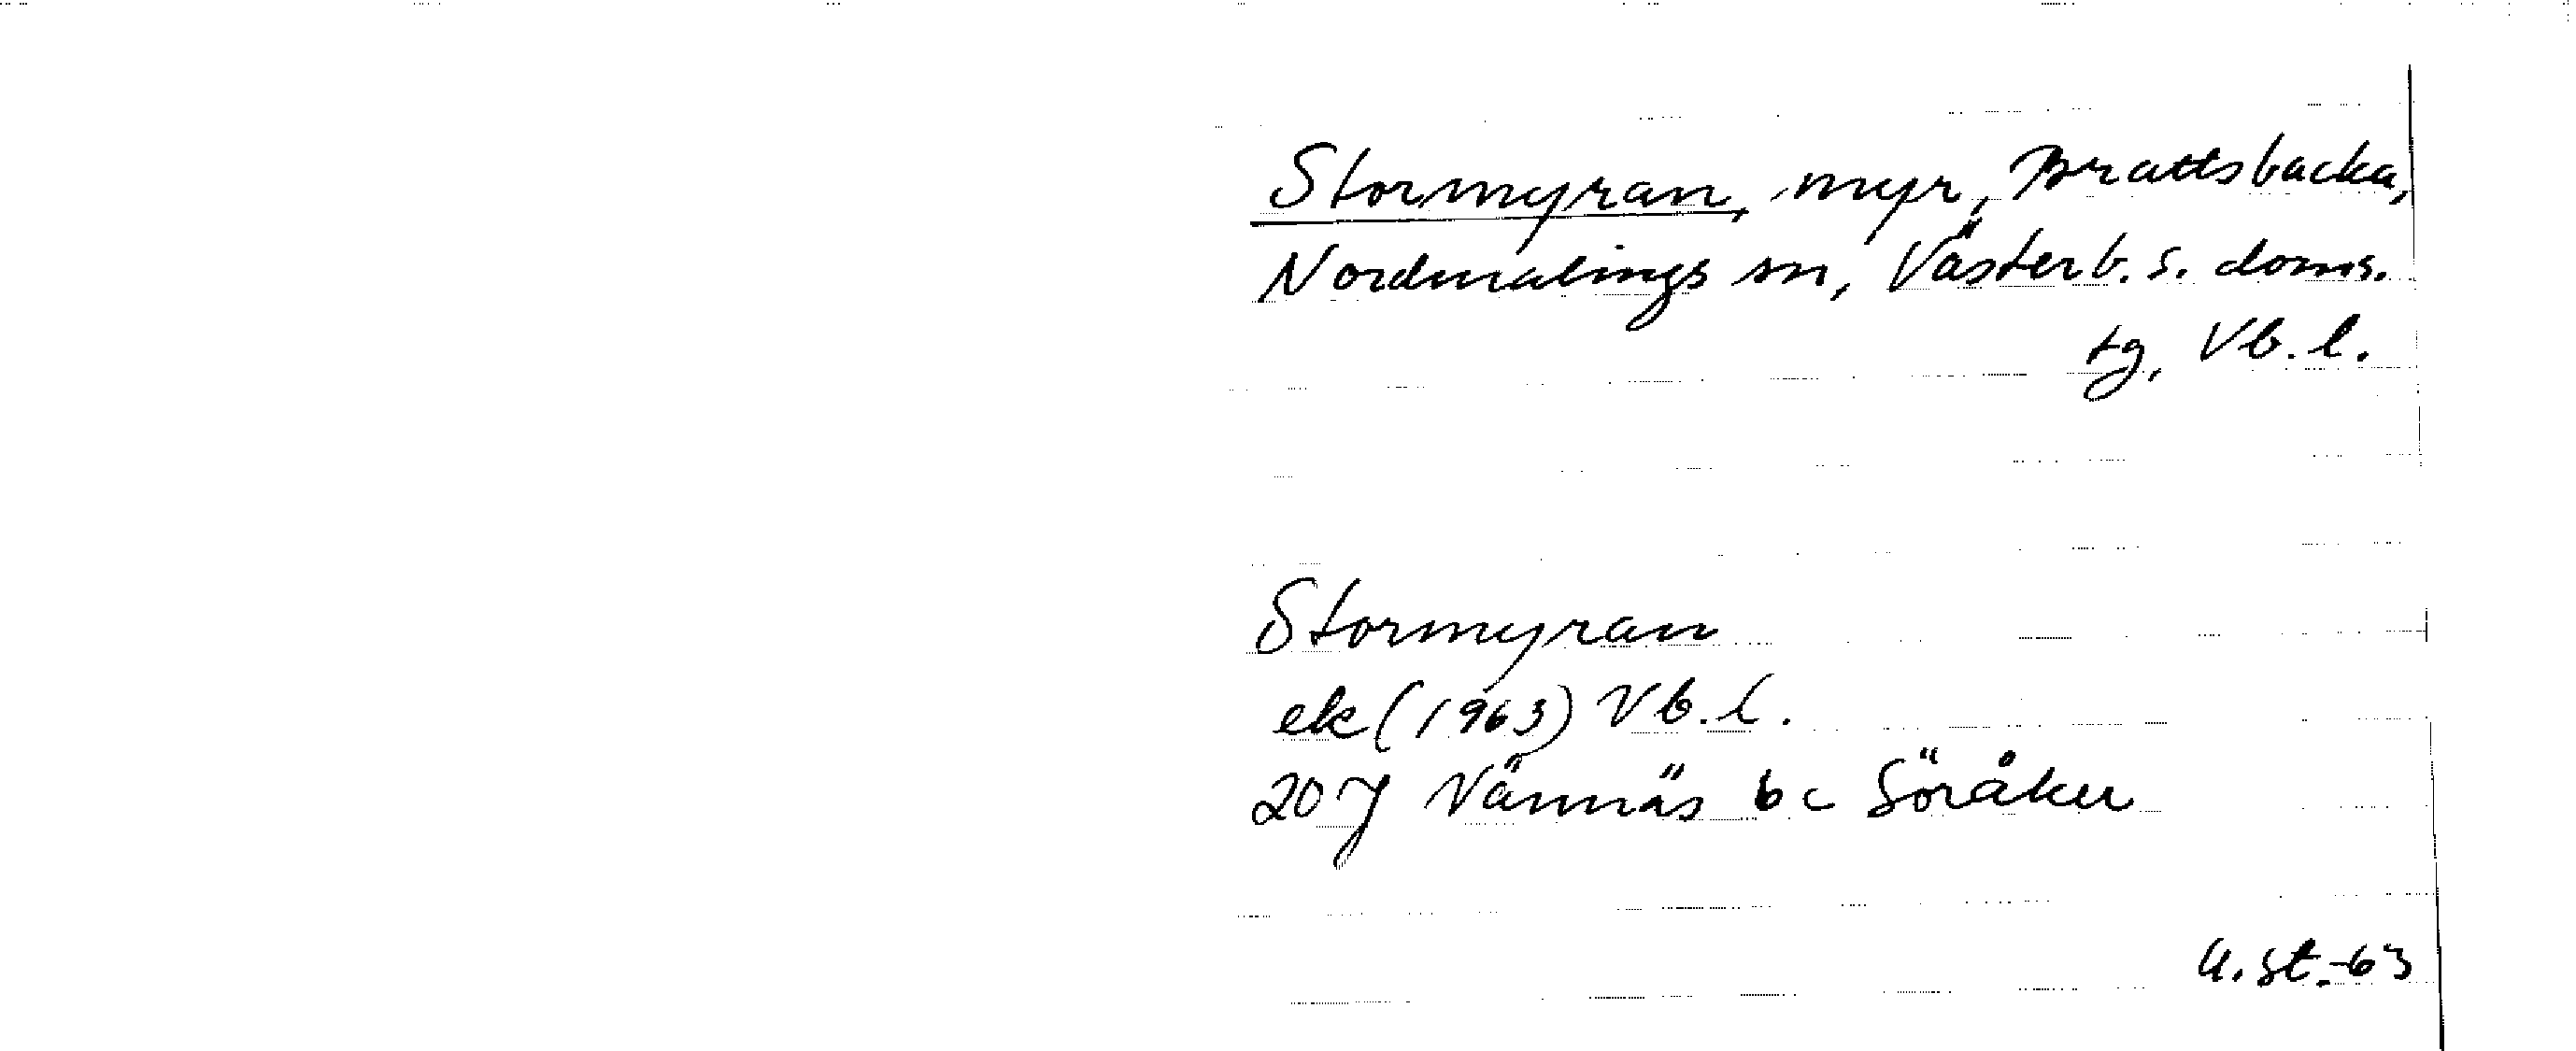 Stormyran, myr, Brattsbacka,
Nordmalings sn, Västerb. s. doms.
tg, Vb. l.
Stormyran
ek (1963) Vb. l.
20 J Vännäs b c Söråker
U. St. -63